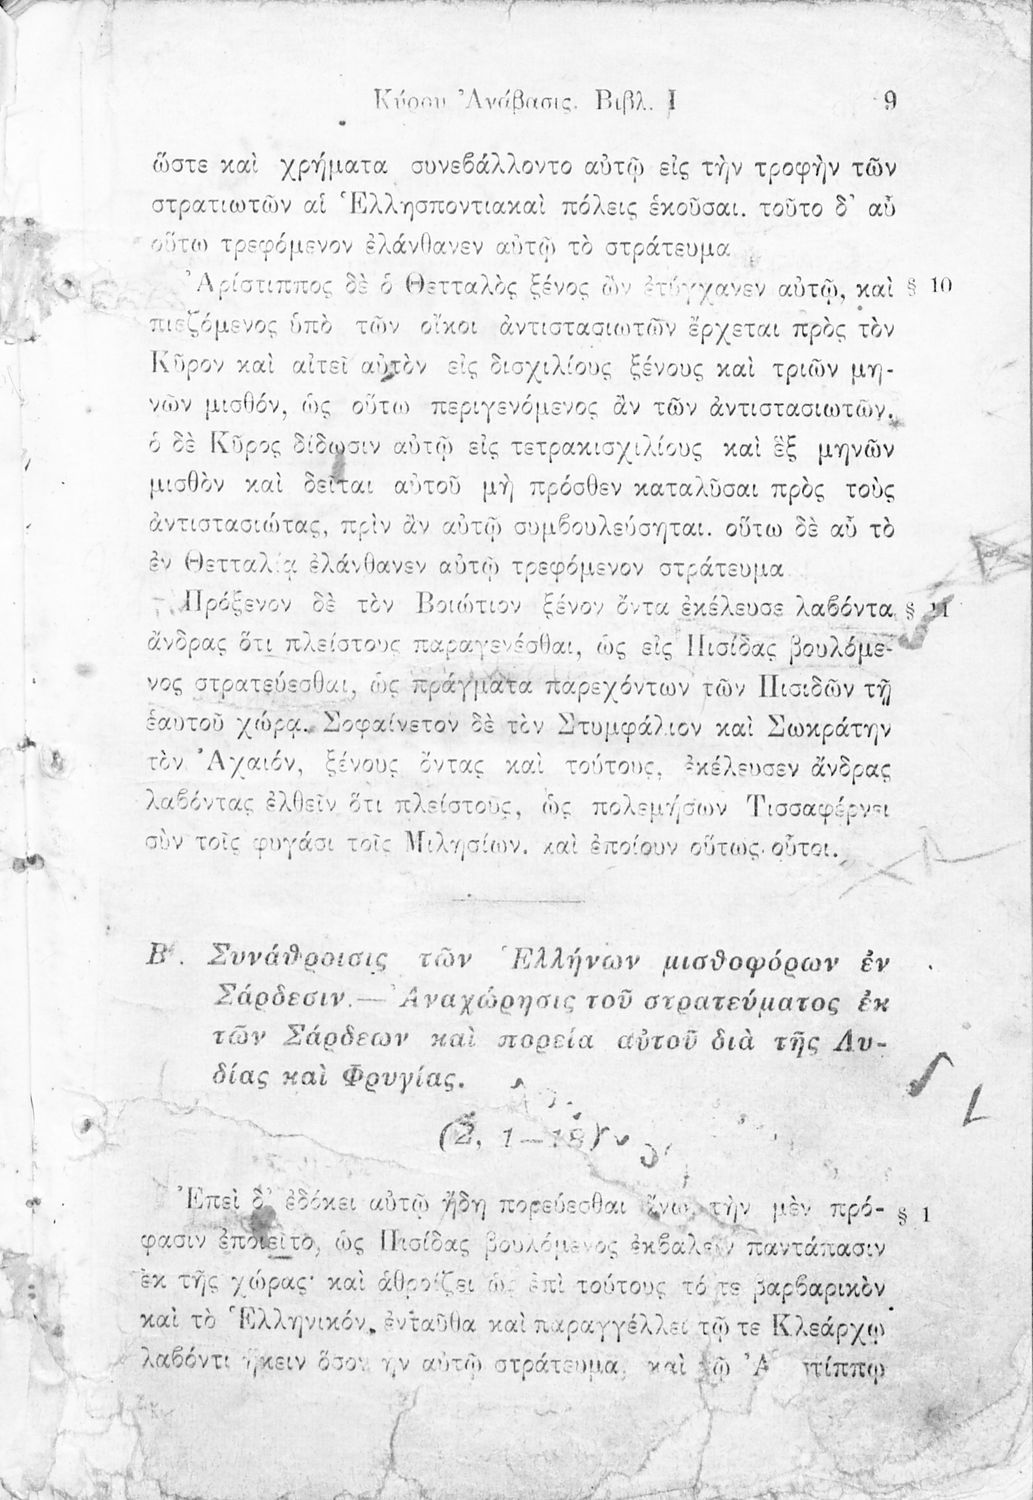 Κύρου Ἀνάβασις. Βιβλ. I 9
ὥστε καὶ χρήματα συνεβάλλοντο αὐτῷ εἰς τὴν τροφὴν τῶν
στρατιωτῶν αἱ Ἑλλησποντιακαὶ πόλεις ἑκοῦσαι. τοῦτο δ' αὖ
οὕτω τρεφόμενον ἐλάνθανεν αὐτῷ τὸ στράτευμα
Ἀρίστιππος δὲ ὁ Θετταλὸς ξένος ὢν ἐτύγχανεν αὐτῷ, καὶ § 10
πιεζόμενος ὑπὸ τῶν οἴκοι ἀντιστασιωτῶν ἔρχεται πρὸς τὸν
Κῦρον καὶ αἰτεῖ αὐτὸν εἰς δισχιλίους ξένους καὶ τριῶν μη-
νῶν μισθόν, ὡς οὕτω περιγενόμενος ἂν τῶν ἀντιστασιωτῶν.
ὁ δὲ Κῦρος δίδωσιν αὐτῷ εἰς τετρακισχιλίους καὶ ἓξ μηνῶν
μισθὸν καὶ δεῖται αὐτοῦ μὴ πρόσθεν καταλῦσαι πρὸς τοὺς
ἀντιστασιώτας, πρὶν ἂν αὐτῷ συμβουλεύσηται. οὕτω δὲ αὖ τὸ
ἐν Θετταλίᾳ ἐλάνθανεν αὐτῷ τρεφόμενον στράτευμα
Πρόξενον δὲ τὸν Βοιώτιον ξένον ὄντα ἐκέλευσε λαβόντα § 11
ἄνδρας ὅτι πλείστους παραγενέσθαι, ὡς εἰς Πισίδας βουλόμε-
νος στρατεύεσθαι, ὡς πράγματα παρεχόντων τῶν Πισιδῶν τῇ
ἑαυτοῦ χώρᾳ. Σοφαίνετον δὲ τὸν Στυμφάλιον καὶ Σωκράτην
τὸν Ἀχαιόν, ξένους ὄντας καὶ τούτους, ἐκέλευσεν ἄνδρας
λαβόντας ἐλθεῖν ὅτι πλείστους, ὡς πολεμήσων Τισσαφέρνει
σὺν τοῖς φυγάσι τοῖς Μιλησίων. καὶ ἐποίουν οὕτως οὗτοι.
Β'. Συνάθροισις τῶν Ἑλλήνων μισθοφόρων ἐν
Σάρδεσιν.— Ἀναχώρησις τοῦ στρατεύματος ἐκ
τῶν Σάρδεων καὶ πορεία αὐτοῦ διὰ τῆς Λυ-
δίας καὶ Φρυγίας.
(2, 1—18)
Ἐπεὶ δ' ἐδόκει αὐτῷ ἤδη πορεύεσθαι ἄνω, τὴν μὲν πρό- § 1
φασιν ἐποιεῖτο, ὡς Πισίδας βουλόμενος ἐκβαλεῖν παντάπασιν
ἐκ τῆς χώρας· καὶ ἀθροίζει ὡς ἐπὶ τούτους τό τε βαρβαρικὸν
καὶ τὸ Ἑλληνικόν, ἐνταῦθα καὶ παραγγέλλει τῷ τε Κλεάρχῳ
λαβόντι ἥκειν ὅσον ἦν αὐτῷ στράτευμα, καὶ τῷ